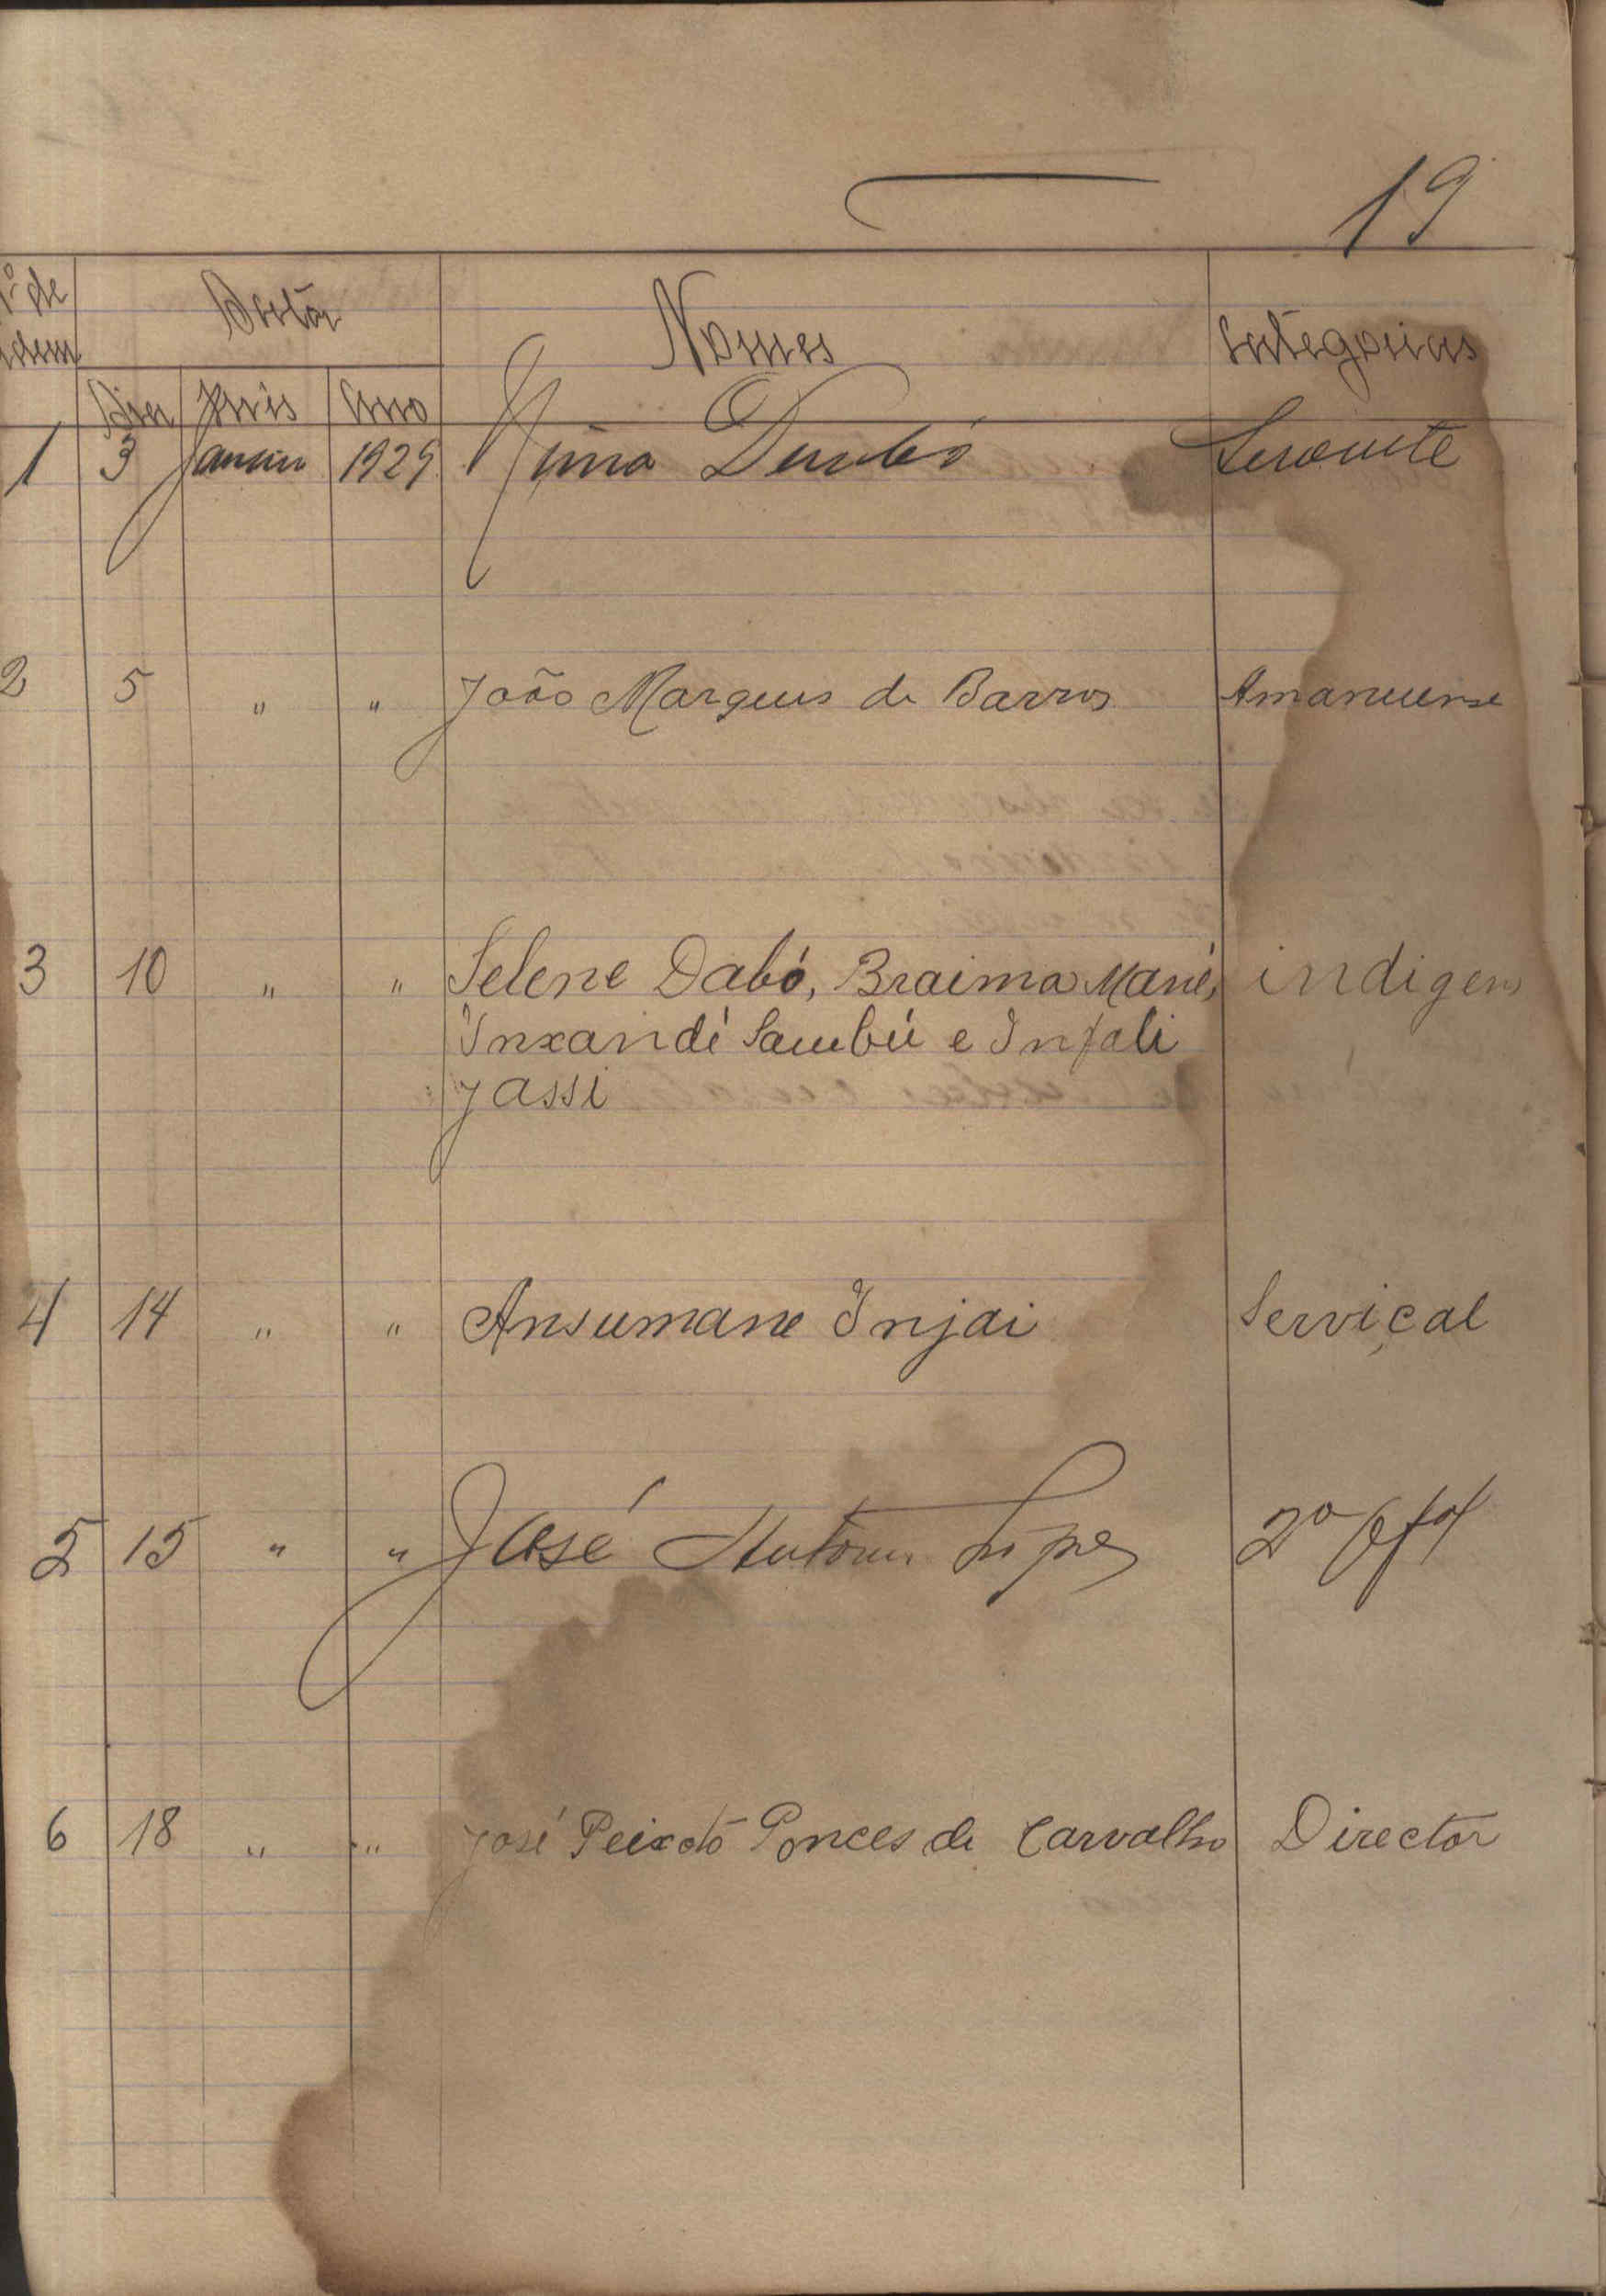 19
Nº de
ordem
Datas
Nomes
Categorias
Dia Mês Ano
1 3 Janeiro 1929 Dembó Servente
2 5 " " João Marques de Barros Amanuense
3 10 " " Selene Dabó, Braima Mané, indigens
Inxandé Sambú e Infali
Jassi
4 14 " " Ansumane Injai Serviçal
5 15 " " José Antonio Lopes 2º Ofal
6 18 " " José Peixoto Ponces de Carvalho Director